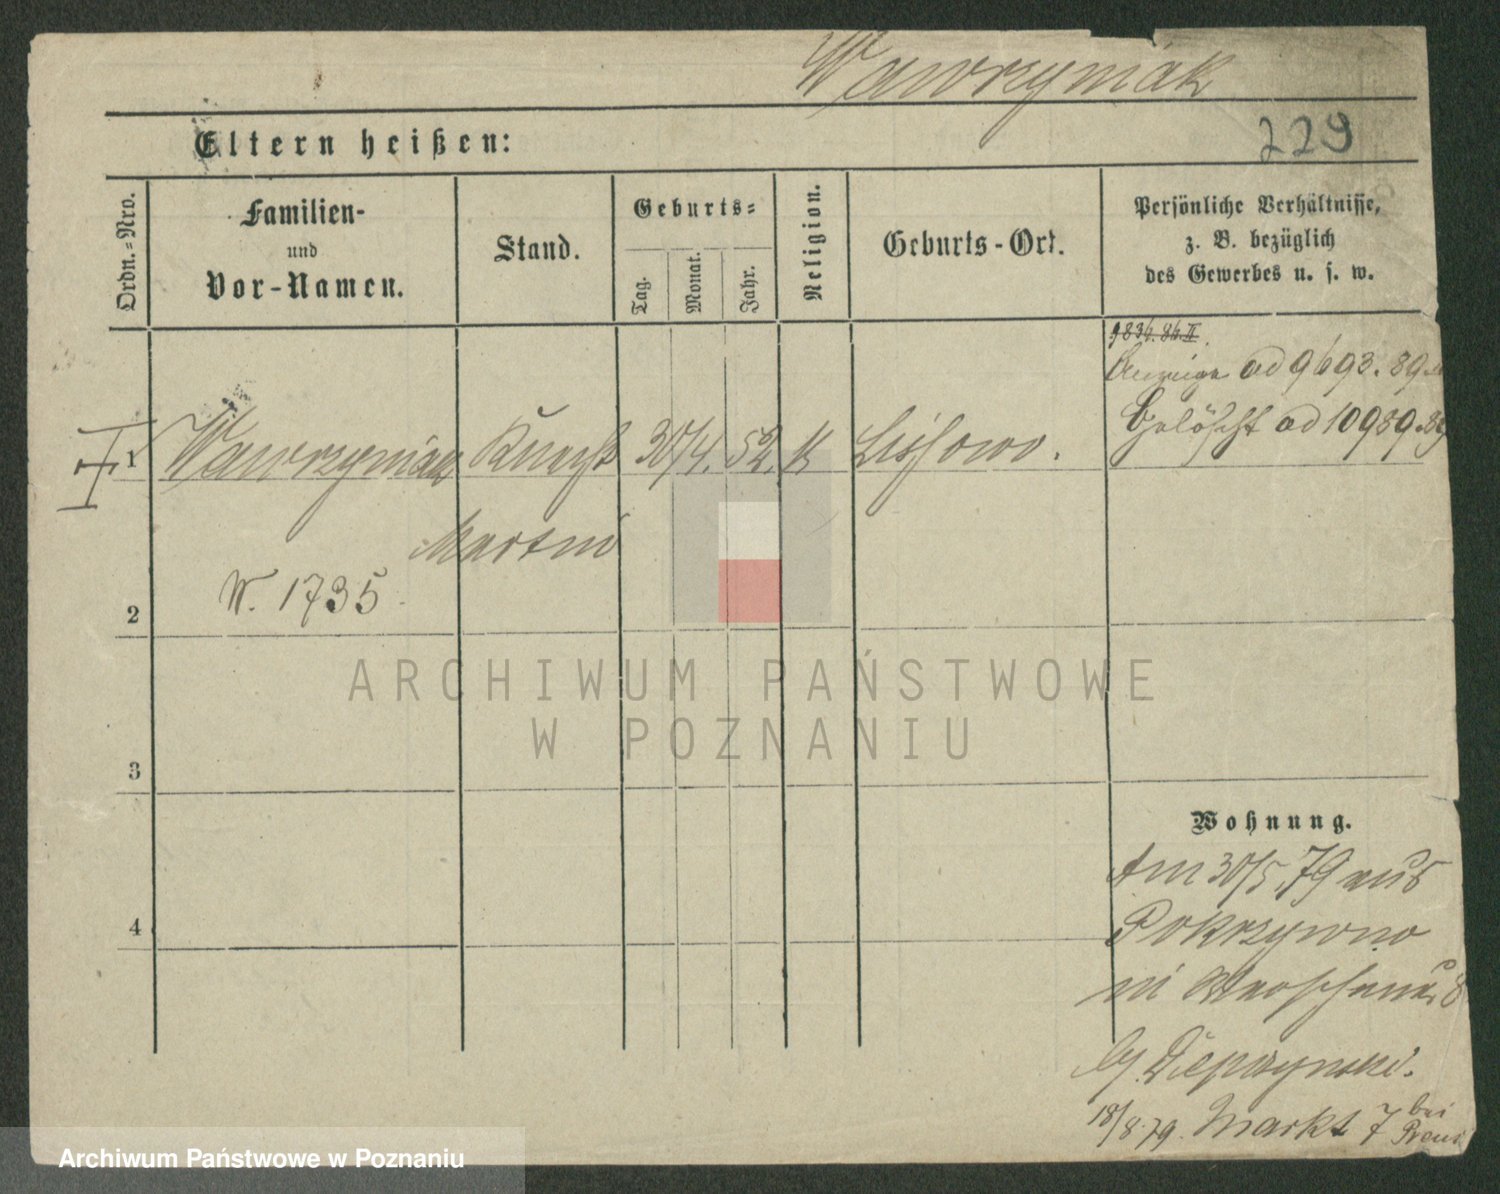 Wawrzyniak
229
Eltern heißen:
Ordn.=Nro.
Familien-
und
Vor-Namen.
Stand.
Geburts=
Tag.
Monat.
Jahr.
Religion.
Geburts-Ort.
Persönliche Verhältnisse,
z. B. bezüglich
des Gewerbes u. s. w.
9834.86.II.
Anzeige ad 9693.89.
Gelöscht ad 10989.89
1 Wawrzyniak Knecht 30/4. 52. K Lissowo.
Martin
W. 1735
2
3
4
ARCHIWUM PAŃSTWOWE
W POZNANIU
Wohnung.
Am 30/5.79 aus
Pokrzywno
18/8.79. Markt 7 bei
Archiwum Państwowe w Poznaniu